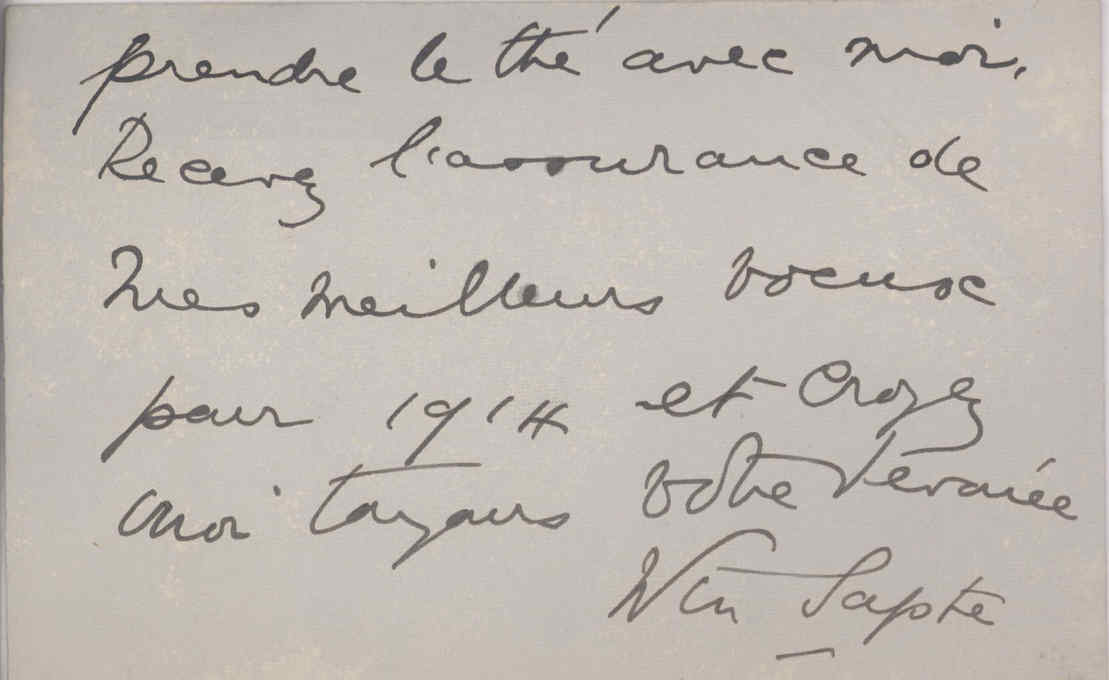 prendre le thé avec moi.
Recevez l'assurance de
mes meilleurs voeux
pour 1914 et croyez
moi toujours votre dévouée
Wm Sapte